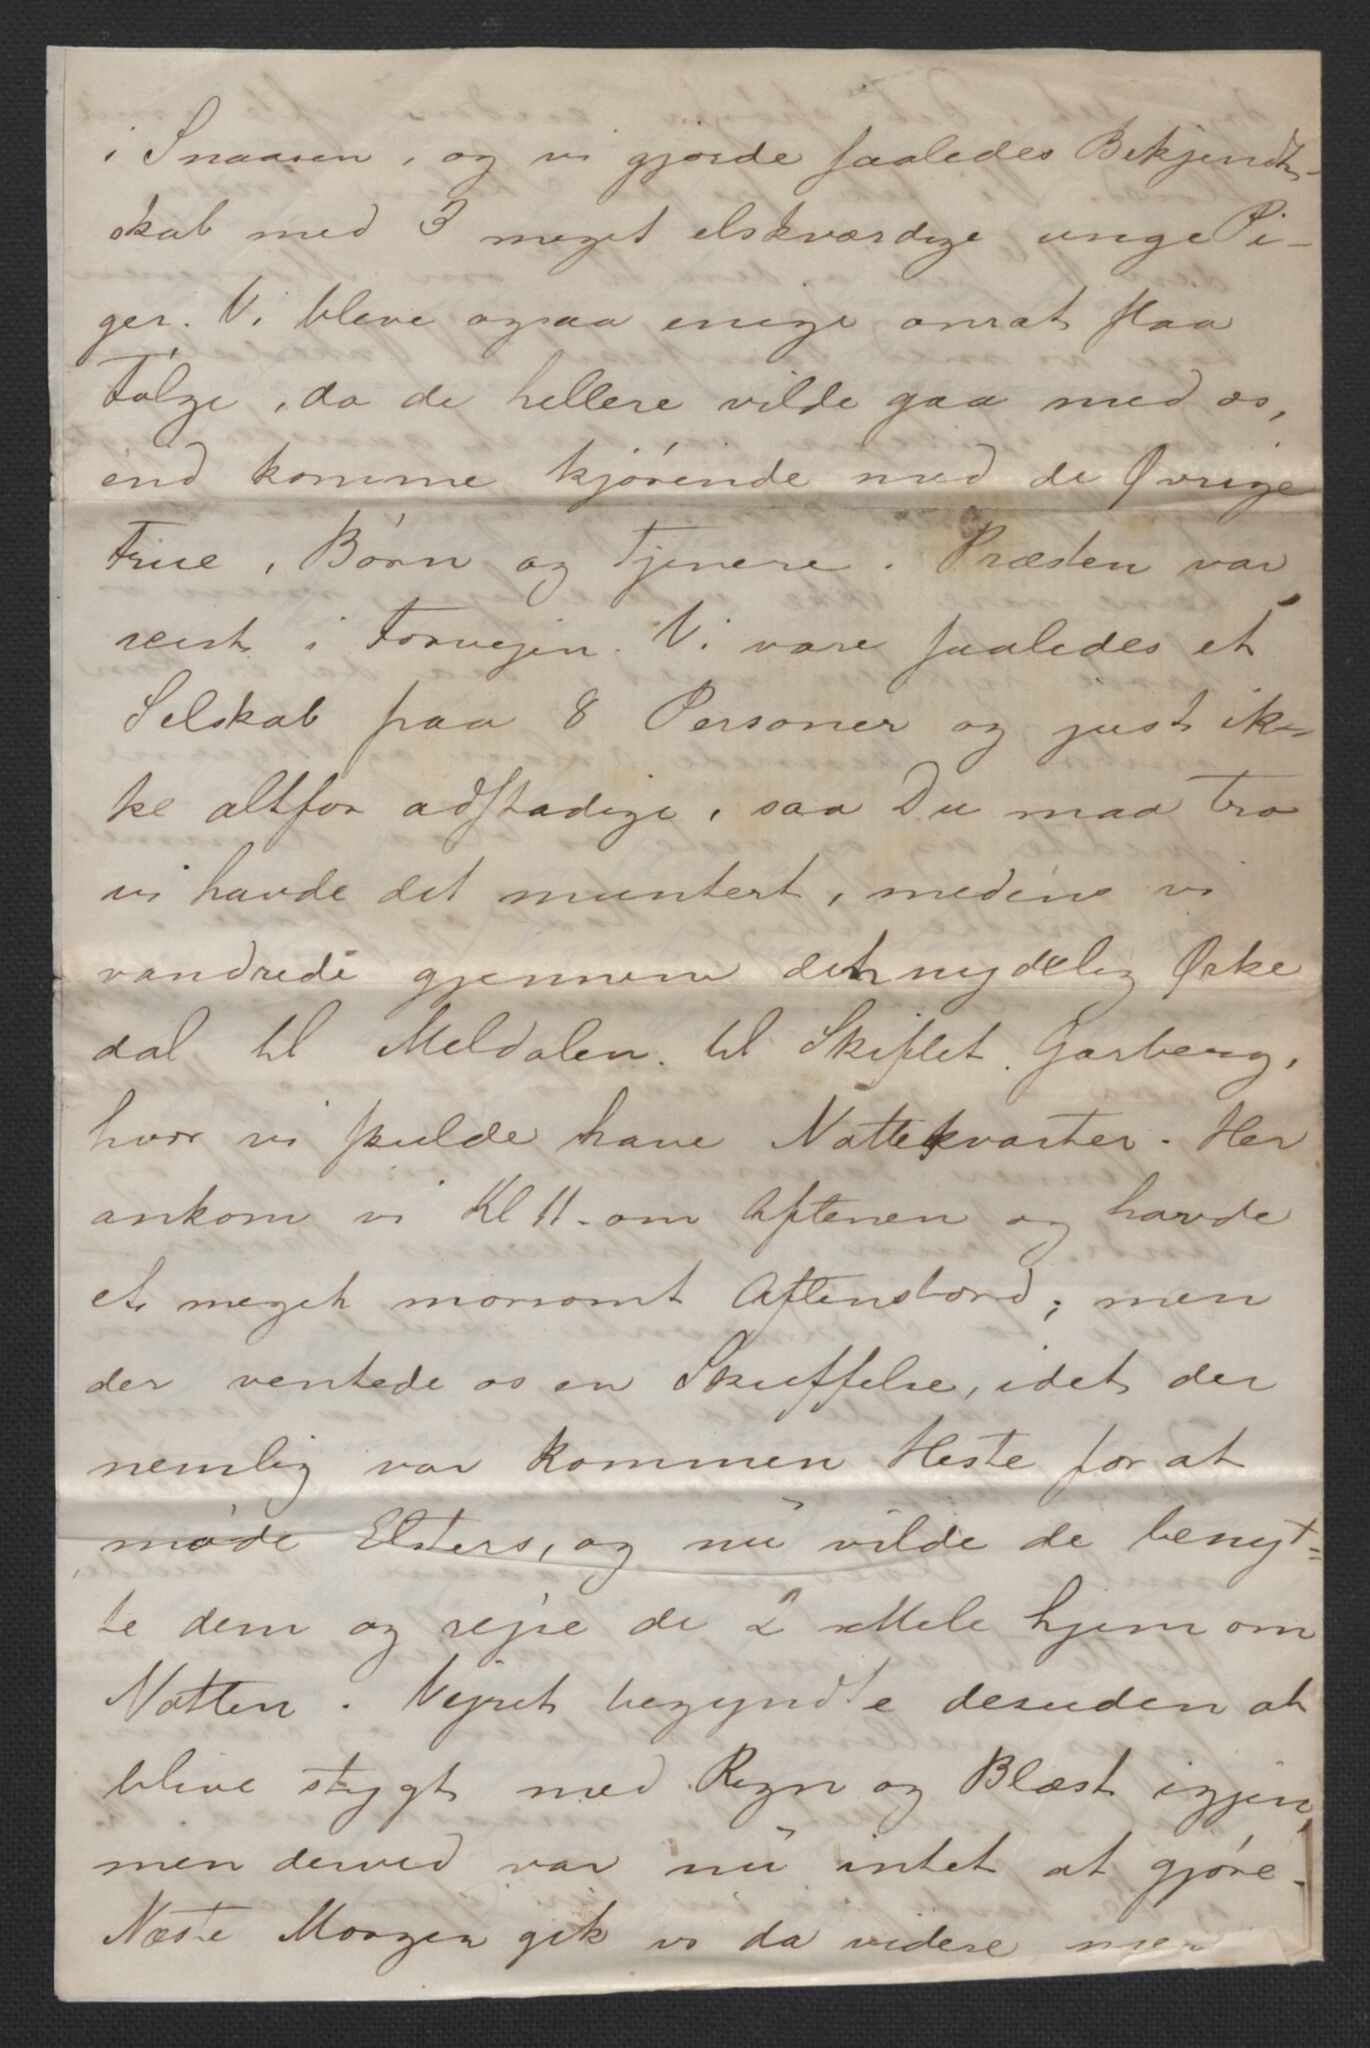 i Snaasen, og vi gjorde saaledes Bekjendt-
skab med 3 meget elskværdige unge Pi-
ger. Vi bleve ogsaa enige omat slaa
Følge, da de hellere vilde gaa med os,
end komme kjørende med de Øvrige
Frue, Børn og Tjenere. Præsten var
reist i Forvejen. Vi vare saaledes et
Selskab paa 8 Personer og just ik-
ke altfor adstadige, saa Du maa tro
vi havde det muntert, medens vi
vandrede gjennem det nydelig Ørke
dal til Meldalen. til Skiftet. Garberg,
hvor vi skulde have Nattekvarter. Her
ankom vi Kl 11. om Aftenen og havde
et meget morsomt Aftensbord; men
der ventede os en Skuffelse, idet der
nemlig var kommen Heste for at
møde Elsters, og nu vilde de benyt-
te dem og rejse de 2 Mile hjem om
Natten. Vejret begyndte desuden at
blive stygt med Regn og Blæst igjen,
men derved var nu intet at gjøre.
Næste Morgen gik vi da videre men